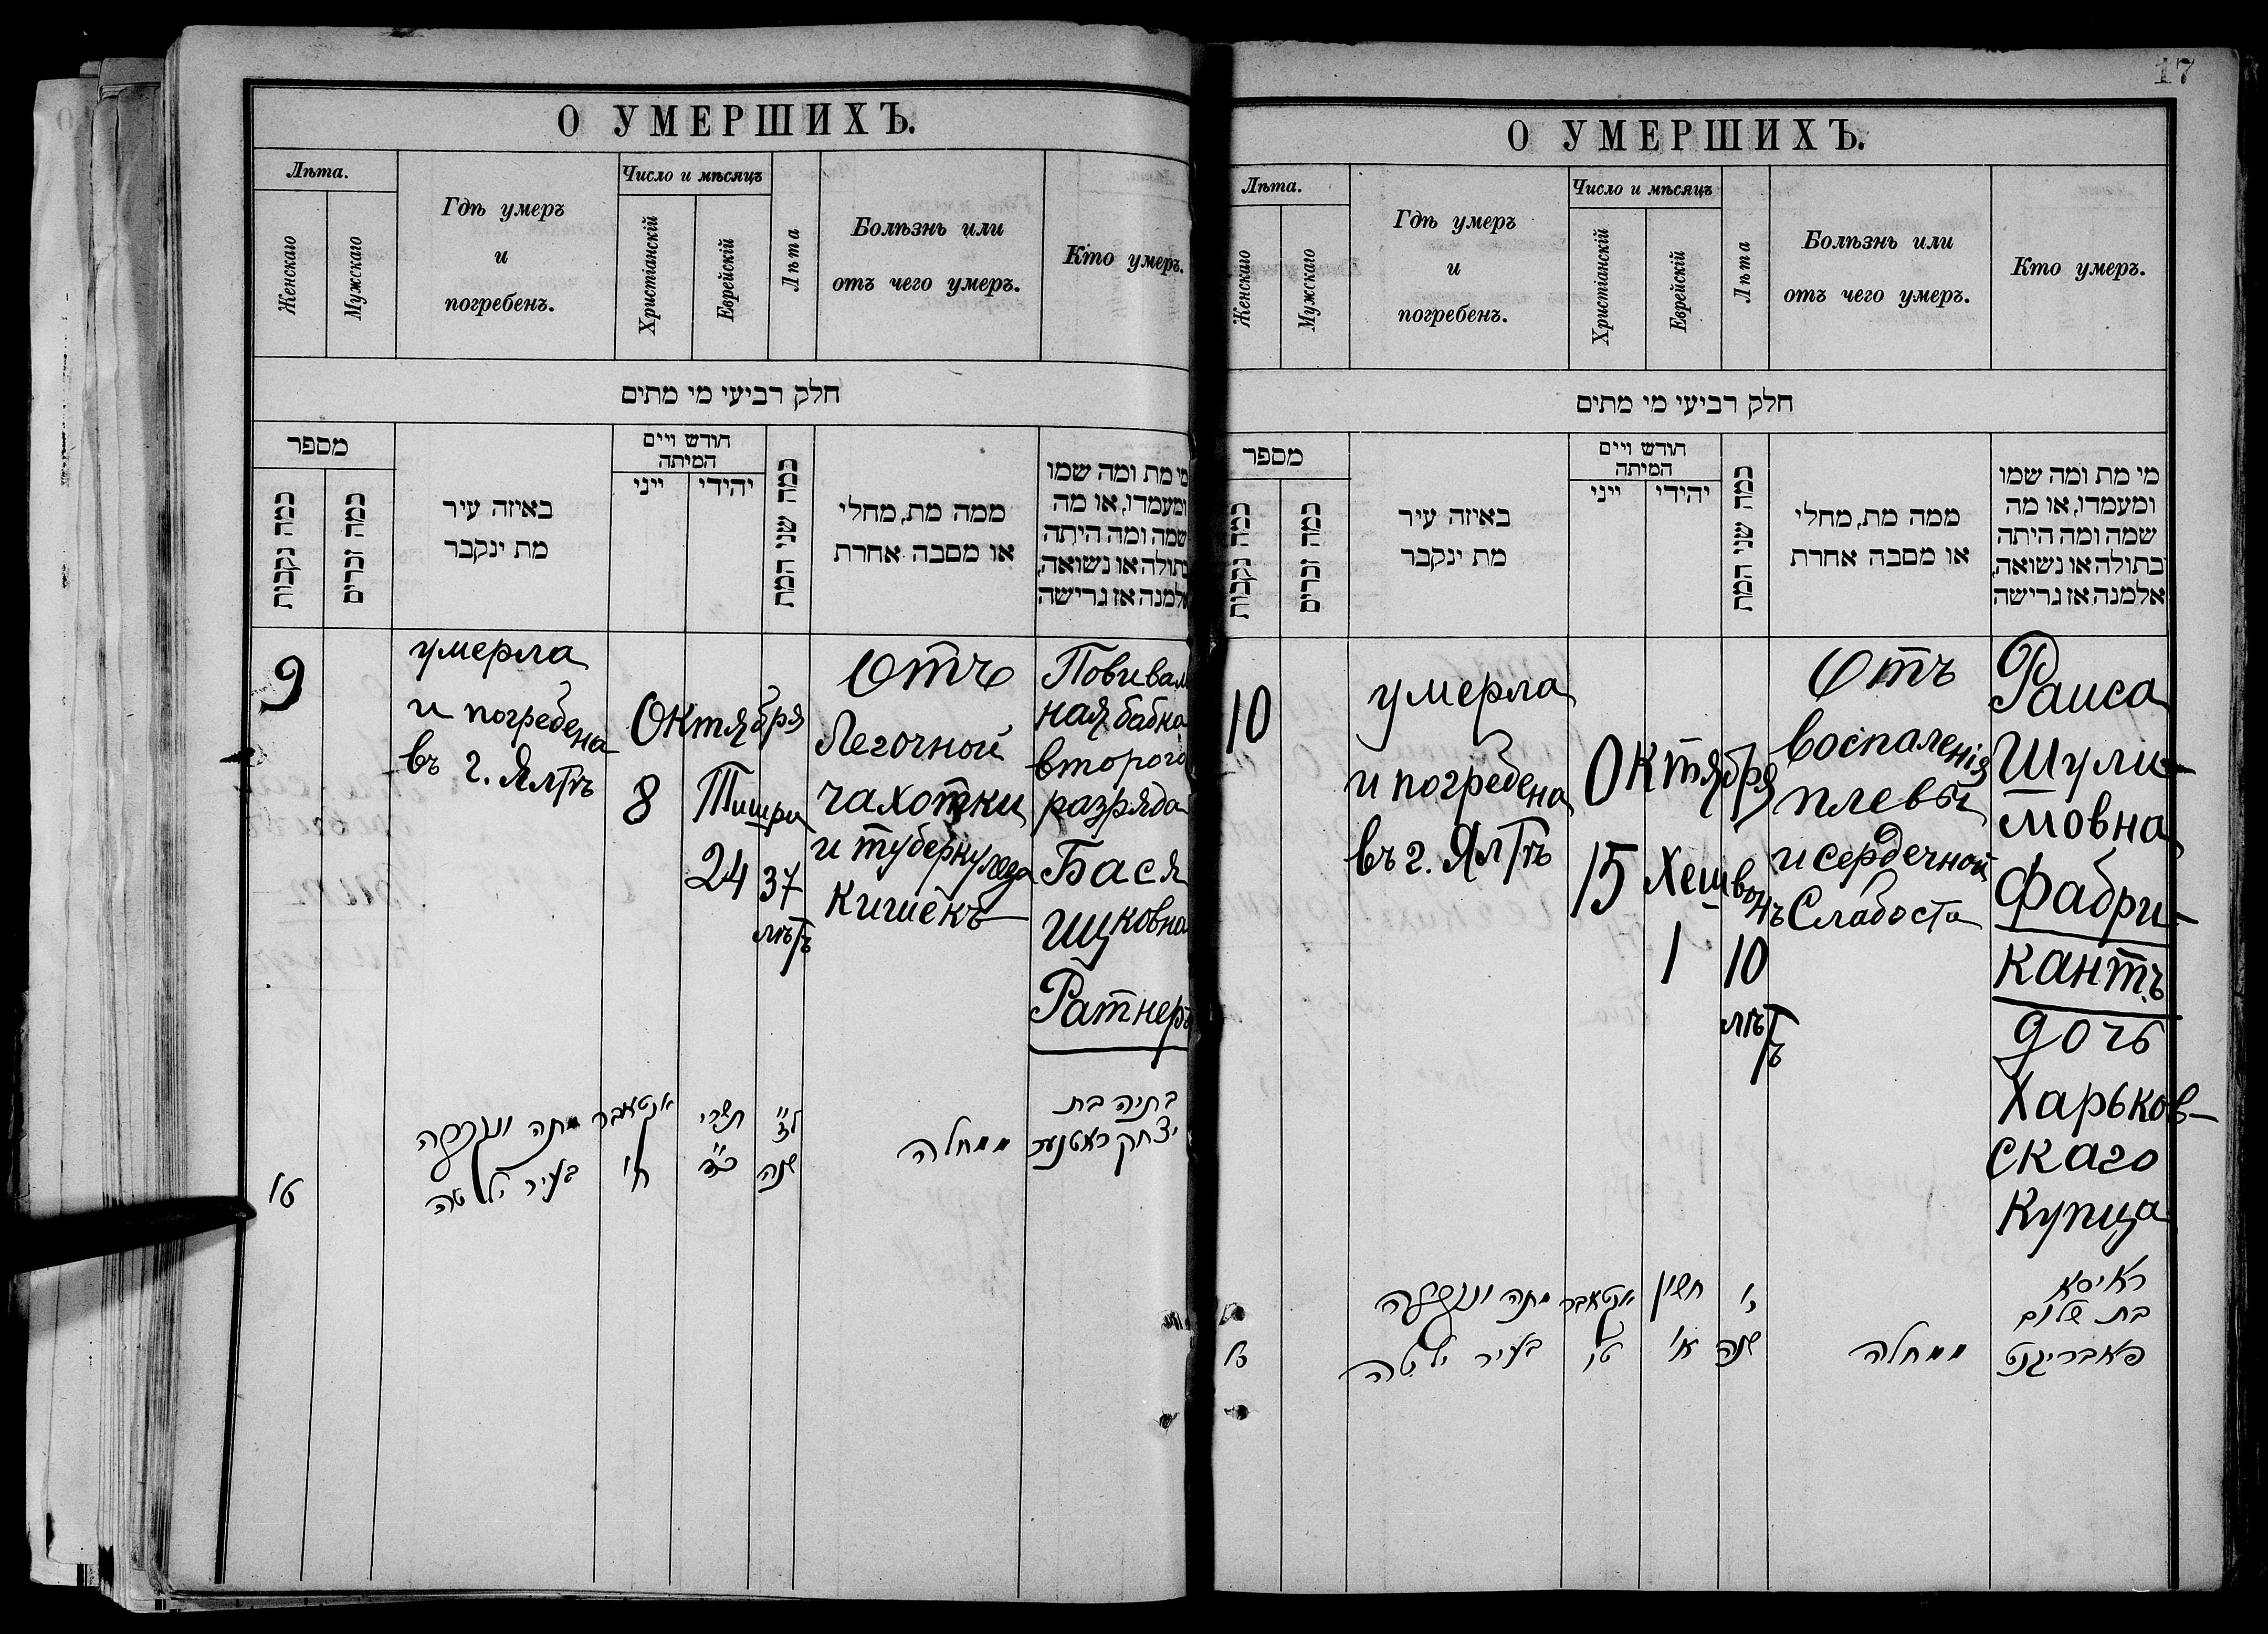 О УМЕРШИХЪ.
Лѣта.
Женскаго
Мужскаго
Гдѣ умеръ
и
погребенъ.
Число и мѣсяцъ
Христіанскій
Еврейскій
Лѣта
Болѣзнь или
отъ чего умеръ.
Кто умеръ.
חלק רביעי מי מתים
מספר
כמה נקבות
כמה זכרים
באיזה עיר
מת ינקבר
חודש ויים
המיתה
ייני
יהודי
כמה שני המת
ממה מת, מחלי
או מסבה אחרת
מי מת ומה שמו
ומעמדו, או מה
שמה ומה היתה
בתולה או נשואה,
אלמנה אז גרישה
9
умерла
и погребена
въ г. Ялтѣ
Октября
8
Тишри
24
37
лѣтъ
Отъ
Легочной
чахотки
и туберкулеза
кишекъ
Повиваль
ная бабка
второго
разряда
Бася
Ицковна
Ратнеръ
טו
מתה ונקברה
בעיר ילטה
אקטאבר
ח׳
תשרי
כ״ד
ל״ז
שנה
ממחלה
בתיה בת
יצחק ראטנער
17
О УМЕРШИХЪ.
Лѣта.
Женскаго
Мужскаго
Гдѣ умеръ
и
погребенъ.
Число и мѣсяцъ
Христіанскій
Еврейскій
Лѣта
Болѣзнь или
отъ чего умеръ.
Кто умеръ.
חלק רביעי מי מתים
מספר
כמה נקבות
כמה זכרים
באיזה עיר
מת ינקבר
חודש ויים
המיתה
ייני
יהודי
כמה שני המת
ממה מת, מחלי
או מסבה אחרת
מי מת ומה שמו
ומעמדו, או מה
שמה ומה היתה
בתולה או נשואה,
אלמנה אז גרישה
10
умерла
и погребена
въ г. Ялтѣ
Октября
15
Хешвонъ
1
10
лѣтъ
Отъ
воспаленія
плевы
и сердечной
Слабости
Раиса
Шули-
мовна
Фабри-
кантъ
дочь
Харьков-
скаго
Купца
מתה ונקברה
בעיר ילטה
אקטאבר
טו
חשון
א׳
י׳
שנה
ממחלה
ראיסא
בת שלום
פאבריקנט